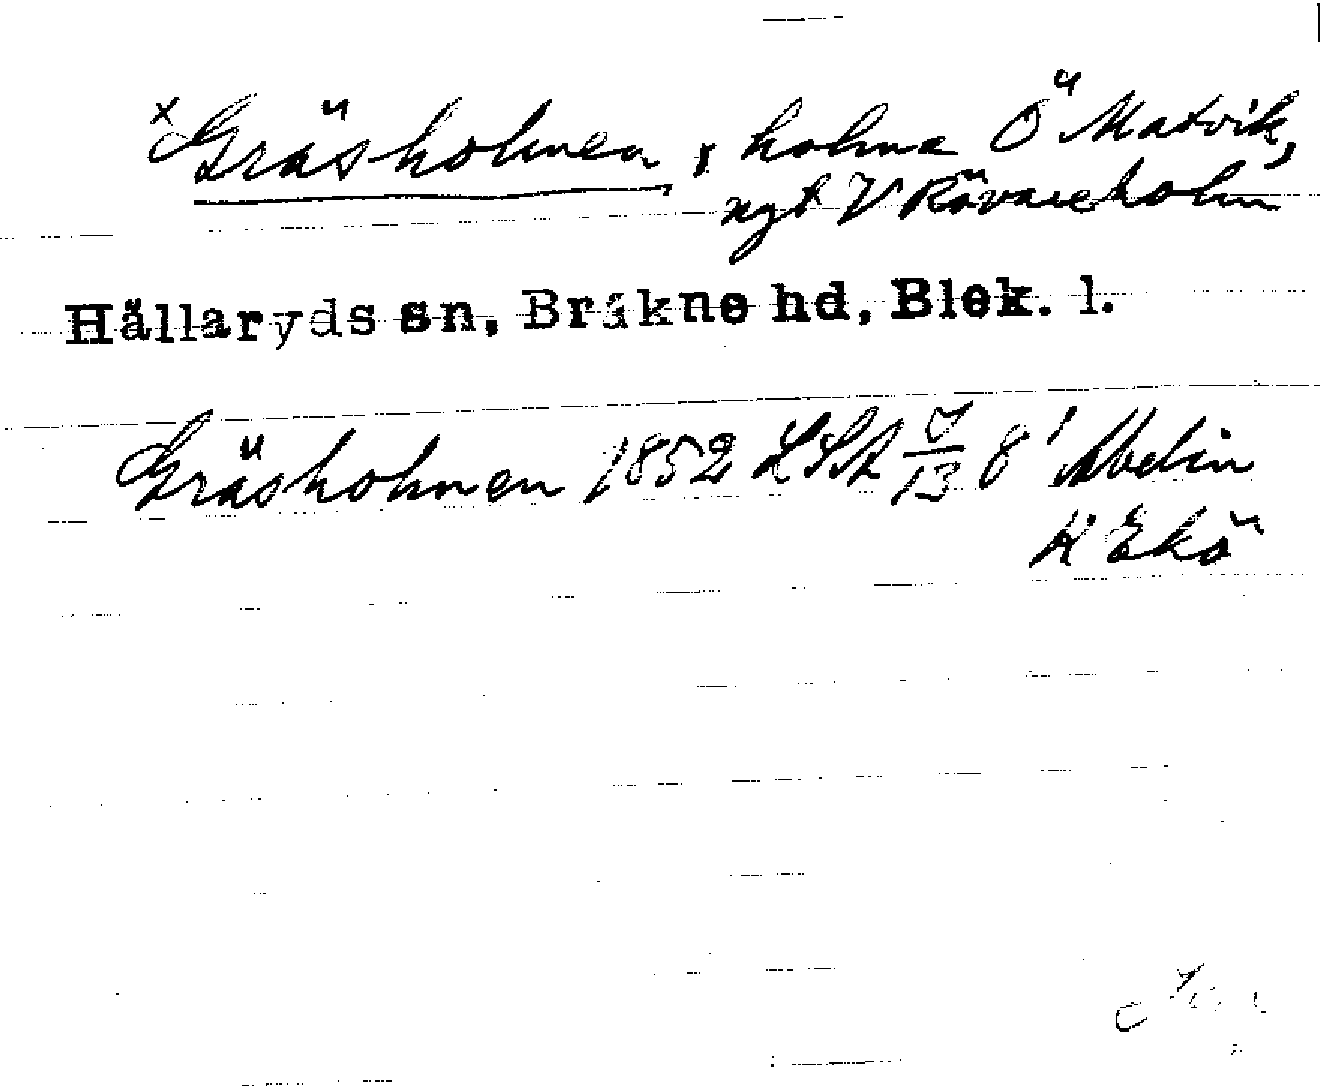 x Gräsholmen, holme Ö Matvik,
ngt V Rövareholm
Hällaryds sn, Bräkne hd, Blek. l.
Gräsholmen 1852 LSA 8' Abelin
K Ekö